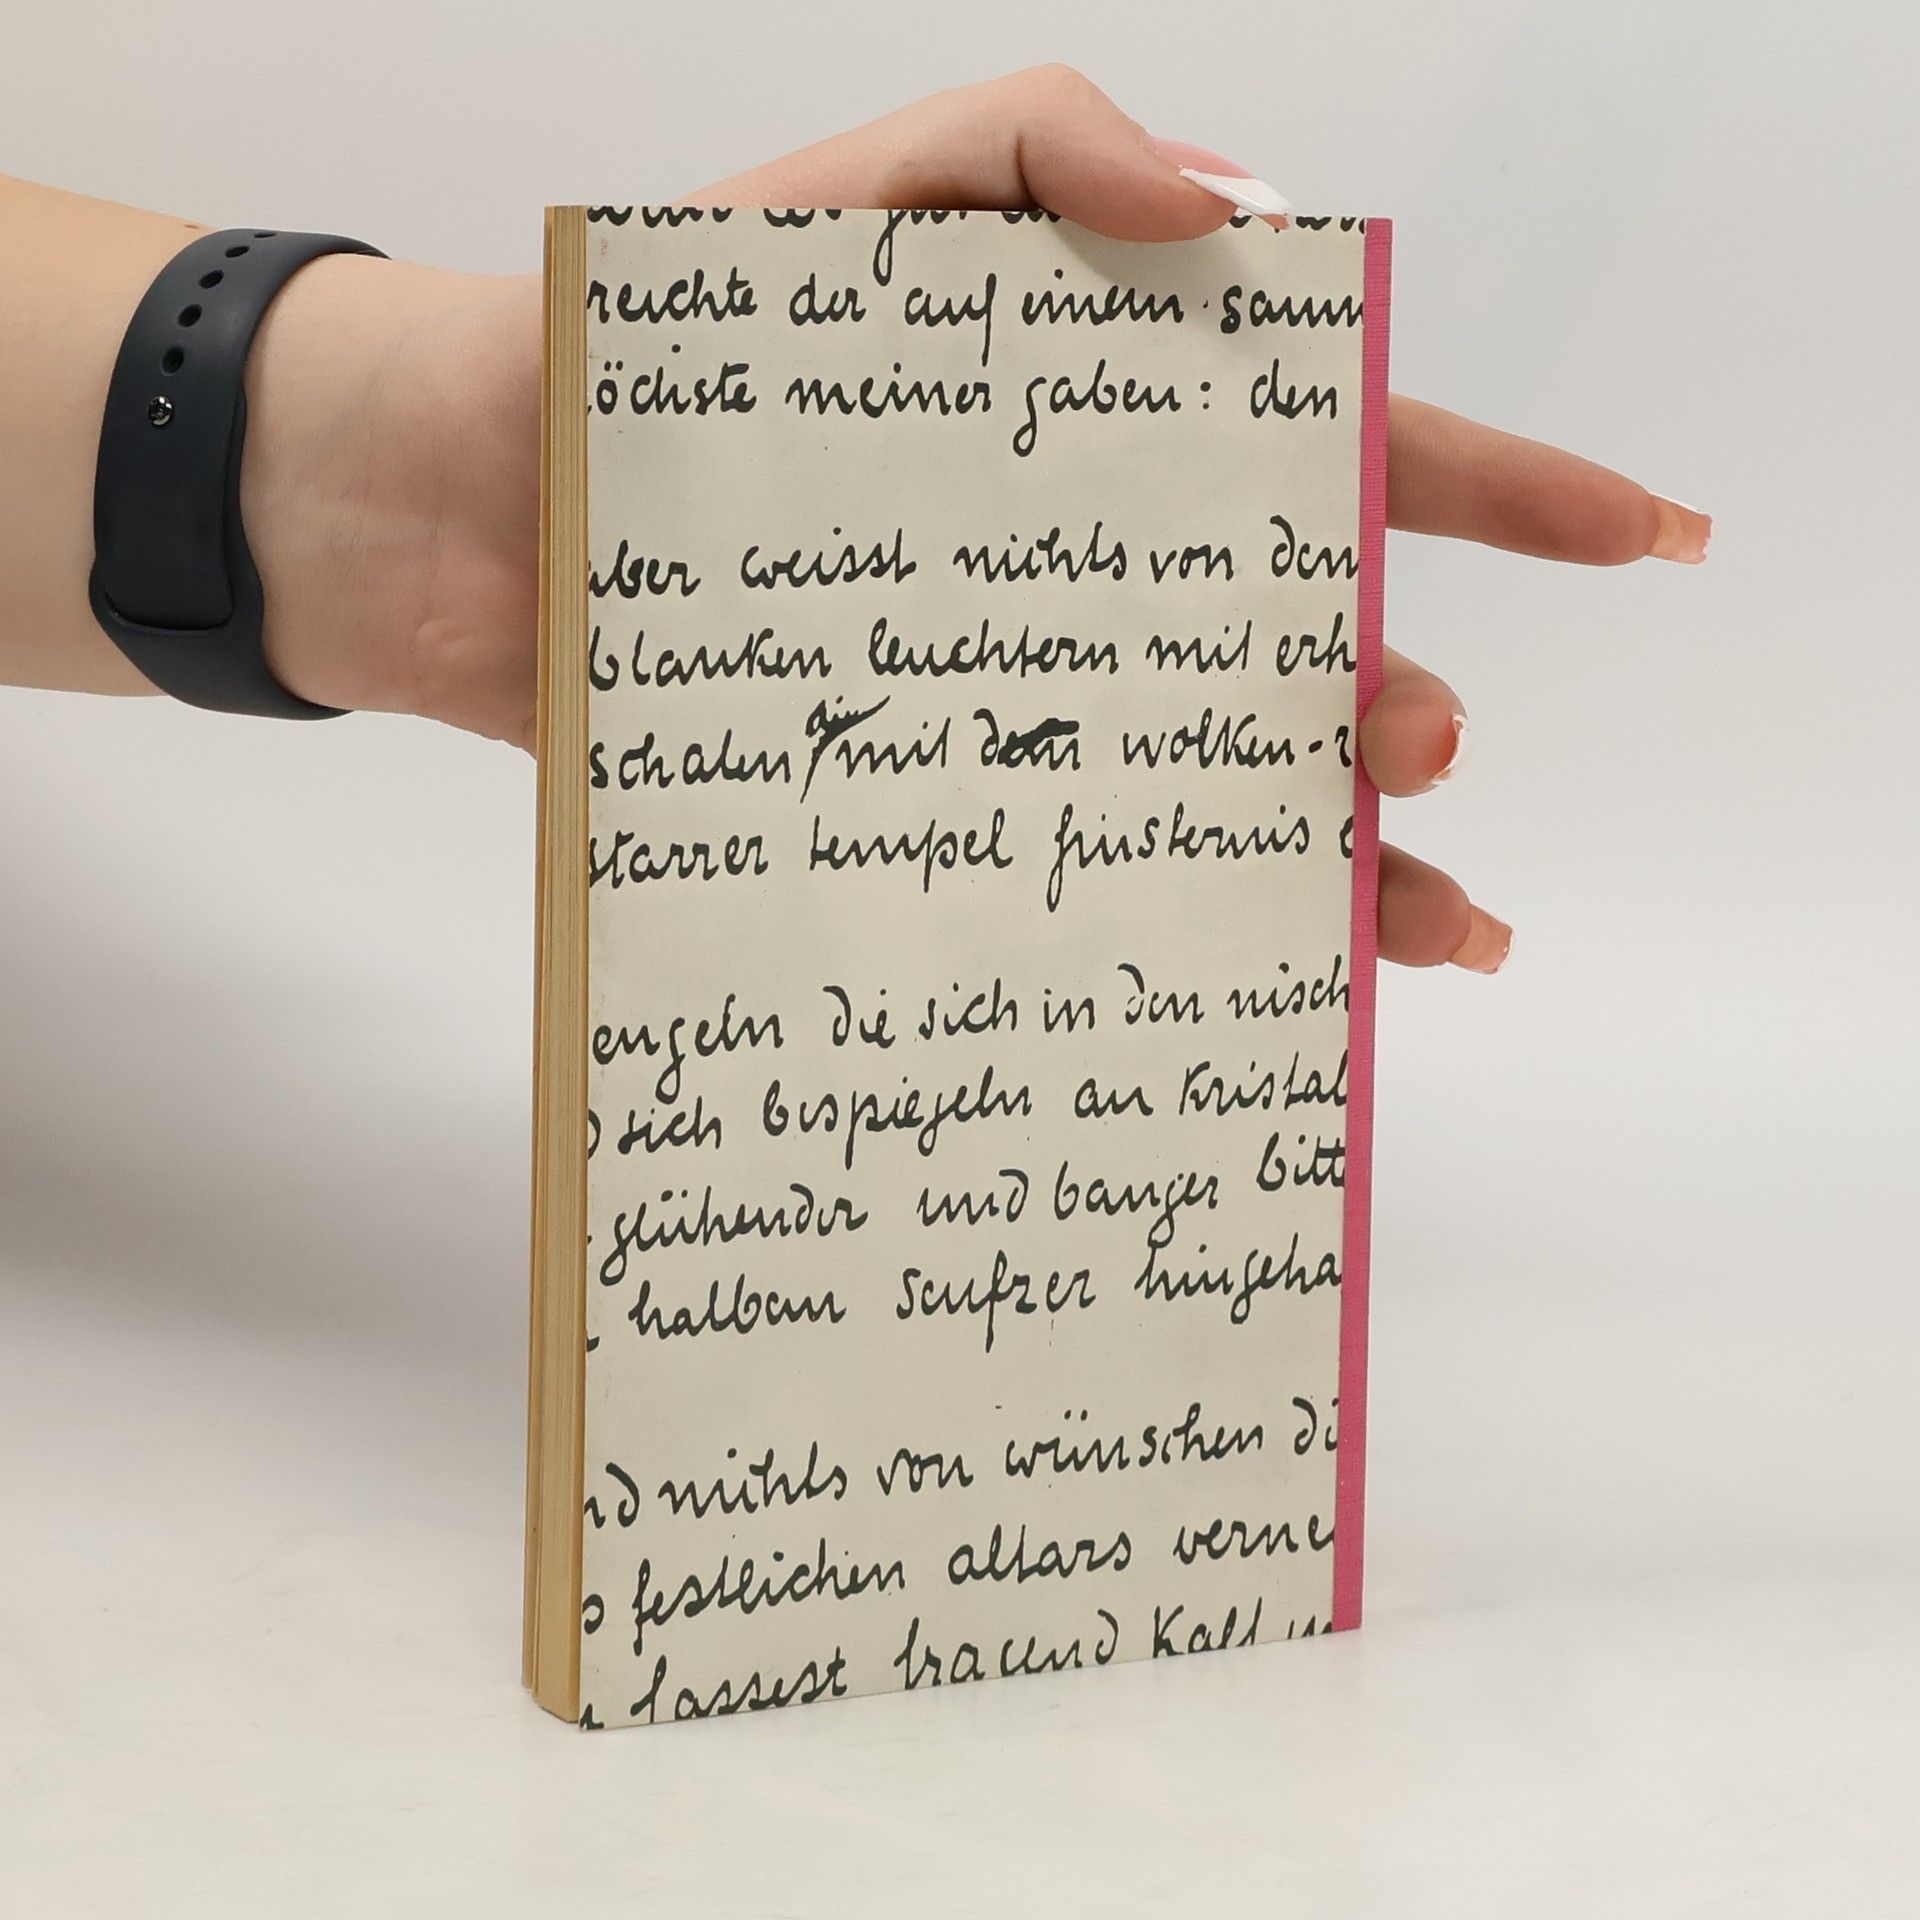 reichte der auf einem samm
öchste meiner gaben: den
aber weisst nichts von den
blanken leuchtern mit erh
schalen die mit den wolken-r
starrer tempel finsternis
engeln die sich in den nisch
sich bespiegeln an Kristal
glühender und banger bitt
halben seufzer hingeha
nd nichts von wünschen di
festlichen altars verne
fassest trauend Kalt